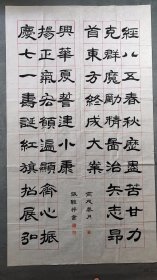 經八五春秋歷盡苦甘力
克群魔勵精圖治矢志昂
首東方終成大業
慶七一壽誕紅旗招展弘
揚正氣宏願齊心振
興華夏誓達小康